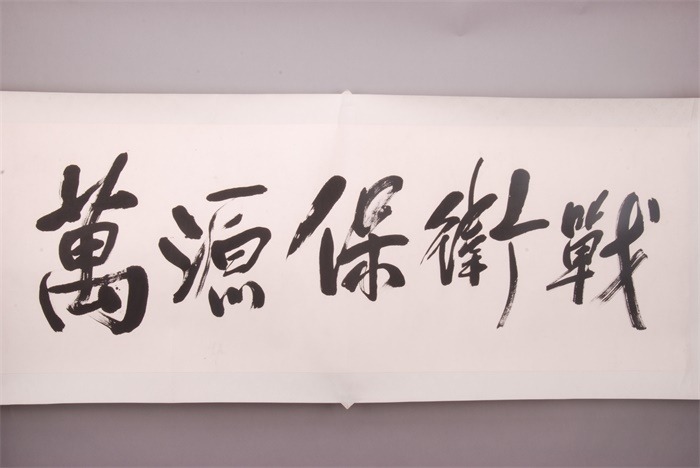 萬源保衛戰